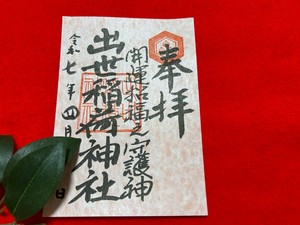 奉拝
開運招福之守護神
出世稲荷神社
令和七年四月日